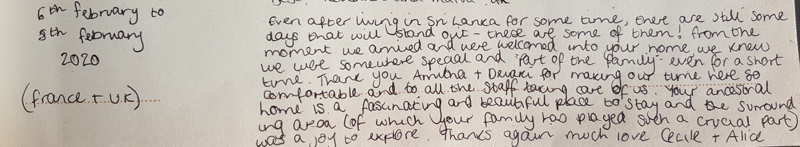 6th february to
8th february
2020
(france + UK)
Even after living in Sri Lanka for some time, there are still some
days that will stand out - these are some of them! from the
moment we arrived and were welcomed into your home we knew
we were somewhere special and 'part of the family' even for a short
time. Thank you + Devaki for making our time here so
comfortable and to all the staff taking care of us. Your ancestral
home is a fascinating and beautiful place to stay and the surround
ing area (of which your family has played such a crucial part)
was a joy to explore. Thanks again much love Cecile + Alice